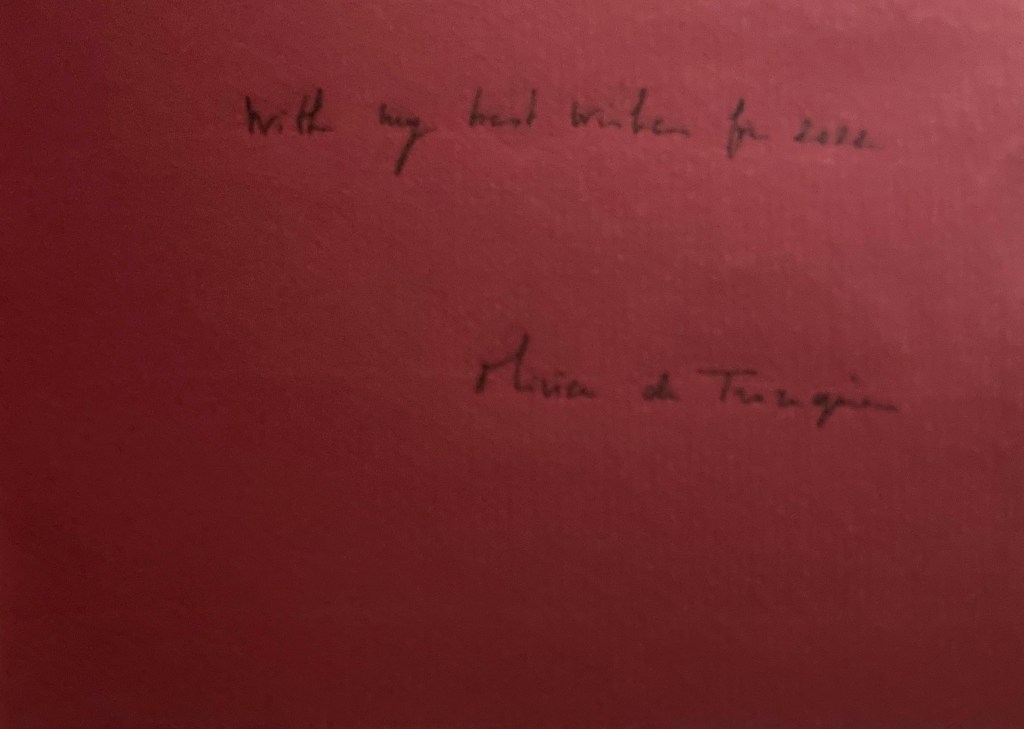 With my best wishes for 2022
Olivia de